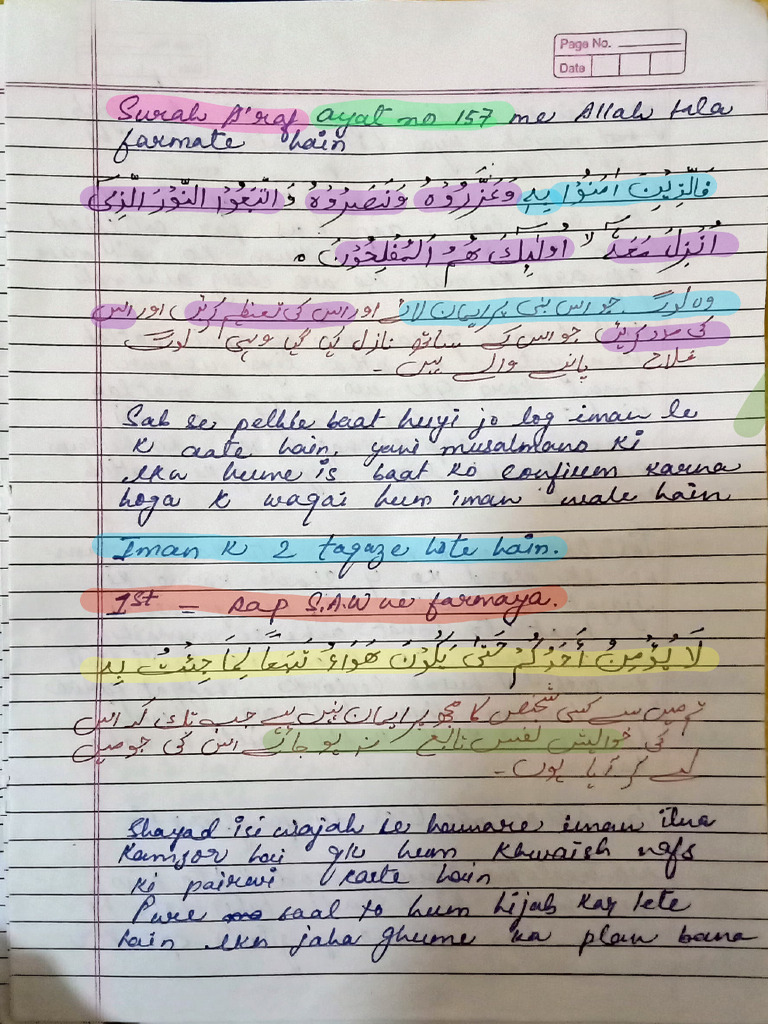 Page No.
Date
Surah A'raf ayat no 157 me Allah tala
farmate hain
فَالَّذِيْنَ اٰمَنُوْا بِهٖ وَعَزَّرُوْهُ وَنَصَرُوْهُ وَاتَّبَعُوا النُّوْرَ الَّذِيْ
اُنْزِلَ مَعَهٗۤ ۙ اُولٰٓئِكَ هُمُ الْمُفْلِحُوْنَ ۰
وہ لوگ جو اس نبی پر ایمان لائے اور اس کی تعظیم کریں اور اس
کی مدد کریں جو اس کے ساتھ نازل کیا گیا وہی لوگ
فلاح پانے والے ہیں۔
Sab se pelhle baat huyi jo log iman le
k aate hain. yani musalmano ki
lkn hume is baat ko confirm karna
hoga k waqai hum iman wale hain
Iman k 2 taqaze hote hain.
1st = Aap S.A.W ne farmaya.
لَا يُؤْمِنُ أَحَدُكُمْ حَتّٰى يَكُوْنَ هَوَاهُ تَبَعاً لِمَا جِئْتُ بِهِ
تم میں سے کسی شخص کا مجھ پر ایمان نہیں ہے جب تک کہ اس
کی خواہش نفس تابع نہ ہو جائے اس کی جو میں
لے کر آیا ہوں۔
Shayad isi wajah se hamare iman itna
kamzor hai q k hum khwaish nafs
ki pairwi karte hain
Pure saal to hum hijab kar lete
hain lkn jaha ghumne ka plan bana